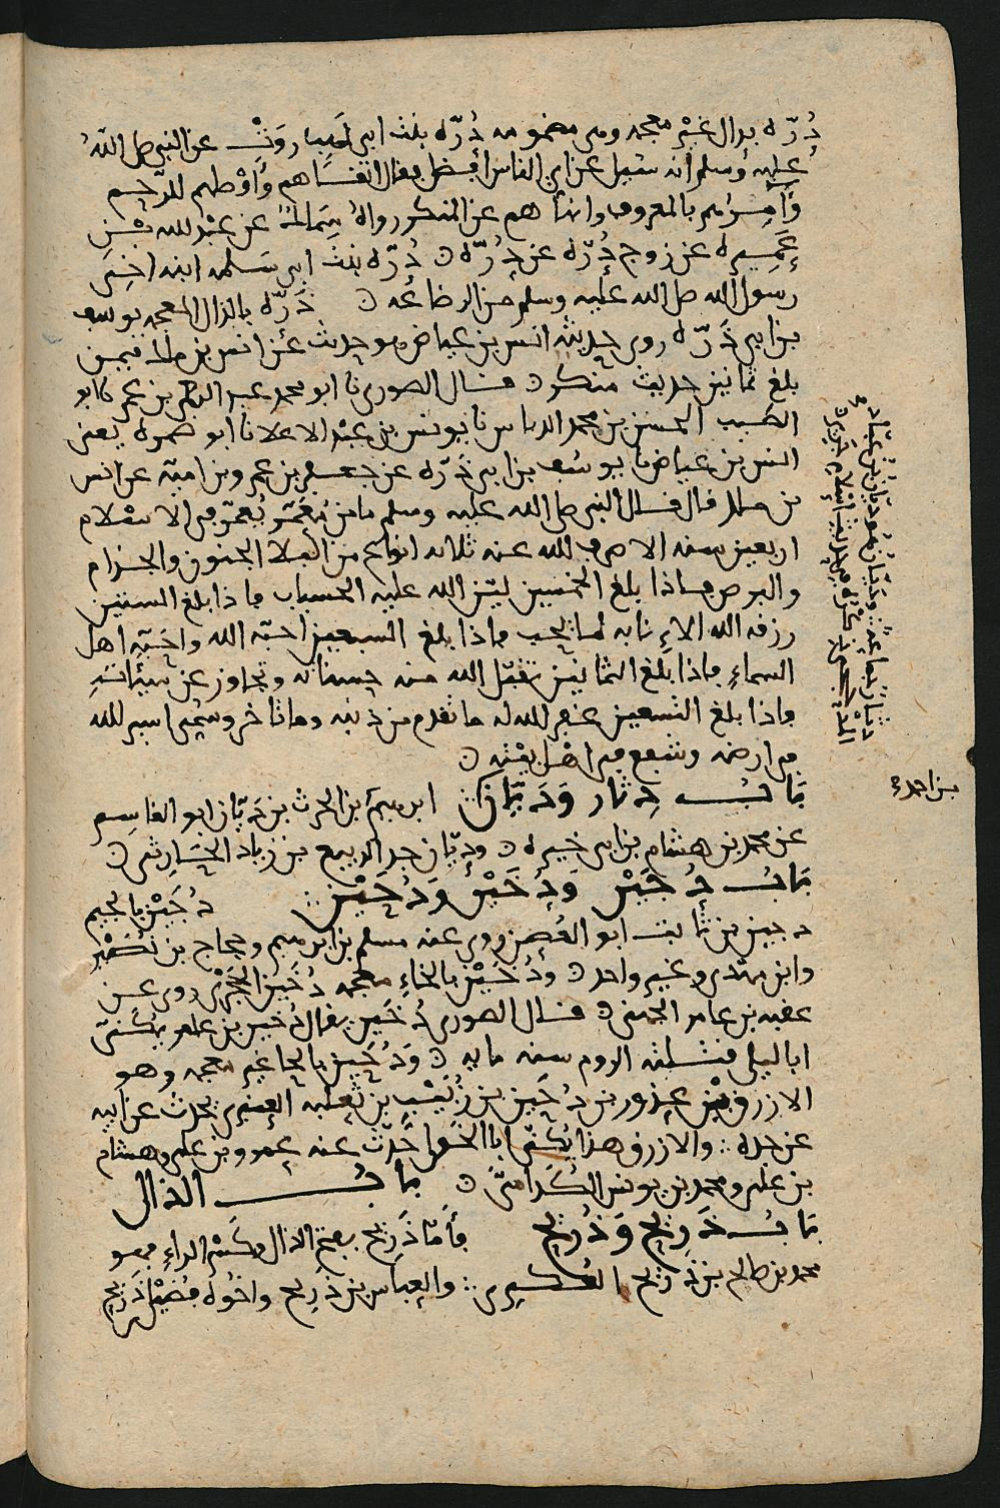 دُرّة بدال غير معجمه وهي مضمومه دُرّة بنت ابي لهب روَتْ عن النبي صلى اللهُ
عليه وسلم انه سئل عن اي الناس افضل فقال اتقاهم واوْصلهم للرحم
وآمرُهم بالمعروف وانهاهم عن المنكر رواهُ سِمَاك عن عبْد الله بْن
عَمِيره عن زوج دُرّة عن دُرّة ⁘ دُرّة بنت ابي سَلمه ابنه اخي
رسول الله صلى الله عليه وسلم من الرضاعه ⁘ ذَرّة بالذال المعجمه يوسف
بن ابي ذَرّة روى حديثه انس بن عياض هو حديث عن انس بن ملك فيمن
بلغ ثمانين حديث منكر ⁘ قال الصوري نا ابو محمد عبد الرحمن بن عمر نا ابو
الطيب الحسين بن محمد نا يونس بن عبْد الاعلا نا ابو ضمرة يعني
انس بن عياض نا يوسُف بن ابي ذَرّة عن جعفر بن عمرو بن امية عن انس
بن ملك قال قال النبي صلى الله عليه وسلم ما من مُعَمَّر يُعمّر في الاسلام
اربعين سنه الا صرف الله عنه ثلاثه انواع من البلا الجنون والجذام
والبرص فاذا بلغ الخمسين ليّن الله عليه الحساب فاذا بلغ الستين
رزقه الله الاِنابه لما يحب فاذا بلغ السبعين احبّه الله واحَبّه اهل
السماءِ فاذا بلغ الثمانين تقبّل الله منه حسناته وتجاوز عن سيّئاتهِ
فاذا بلغ التسعين غفر الله له ما تقدم من ذنبه وما تاخر وسُمّي اسير الله
في ارضه وشفع في اهْل بيْته ⁘
بَابُ دِثار وَدَيّان ابرهيم بن الحرث بن دَيّان ابو القاسم
عن محمد بن هشام بن ابي خيره ⁘ وديّان جد الربيع بن زياد الحَارثي ⁘
بَابُ دُجَيْن وَدُخَيْن وَدُحَيْن دُجَيْن بالجيم
دجين بن ثابت ابو الغُصن روى عنه مسلم بن ابرهيم وحجاج بن نُصَيْر
وابن مهدي وغير واحد ⁘ ودُخَيْن بالخاءِ معجمه دُخَين الحَجْري روى عن
عقبه بن عامر الجهني ⁘ قال الصوري دُخَين يقال دُخين بن عامر يُكْنَى
ابا ليلى قتلته الروم سنه مايه ⁘ وَدُحَيْن بالحا غير معجمه وهو
الازرق بن عذور بن دُحَين بن زُبَيْب بن ثعلبه العنبري يحدث عن ابيه
عن جده ⁘ والازرق هذا يُكْنَى ابا حدّث عنه عمرو بن علي وهشام
بن علي ومحمد بن يونس الكُدَيمي ⁘ بَابُ الذال
بَابُ ذَرِيح وَذُرَيْح فأمّا ذَرِيح بفتح الذال وكسْر الراءِ فهو
محمد بن صالح بن ذَرِيح العُكبري ⁘ والعباس بن ذَرِيح واخوُه فُضيل بن ذَرِيح
بن احمد